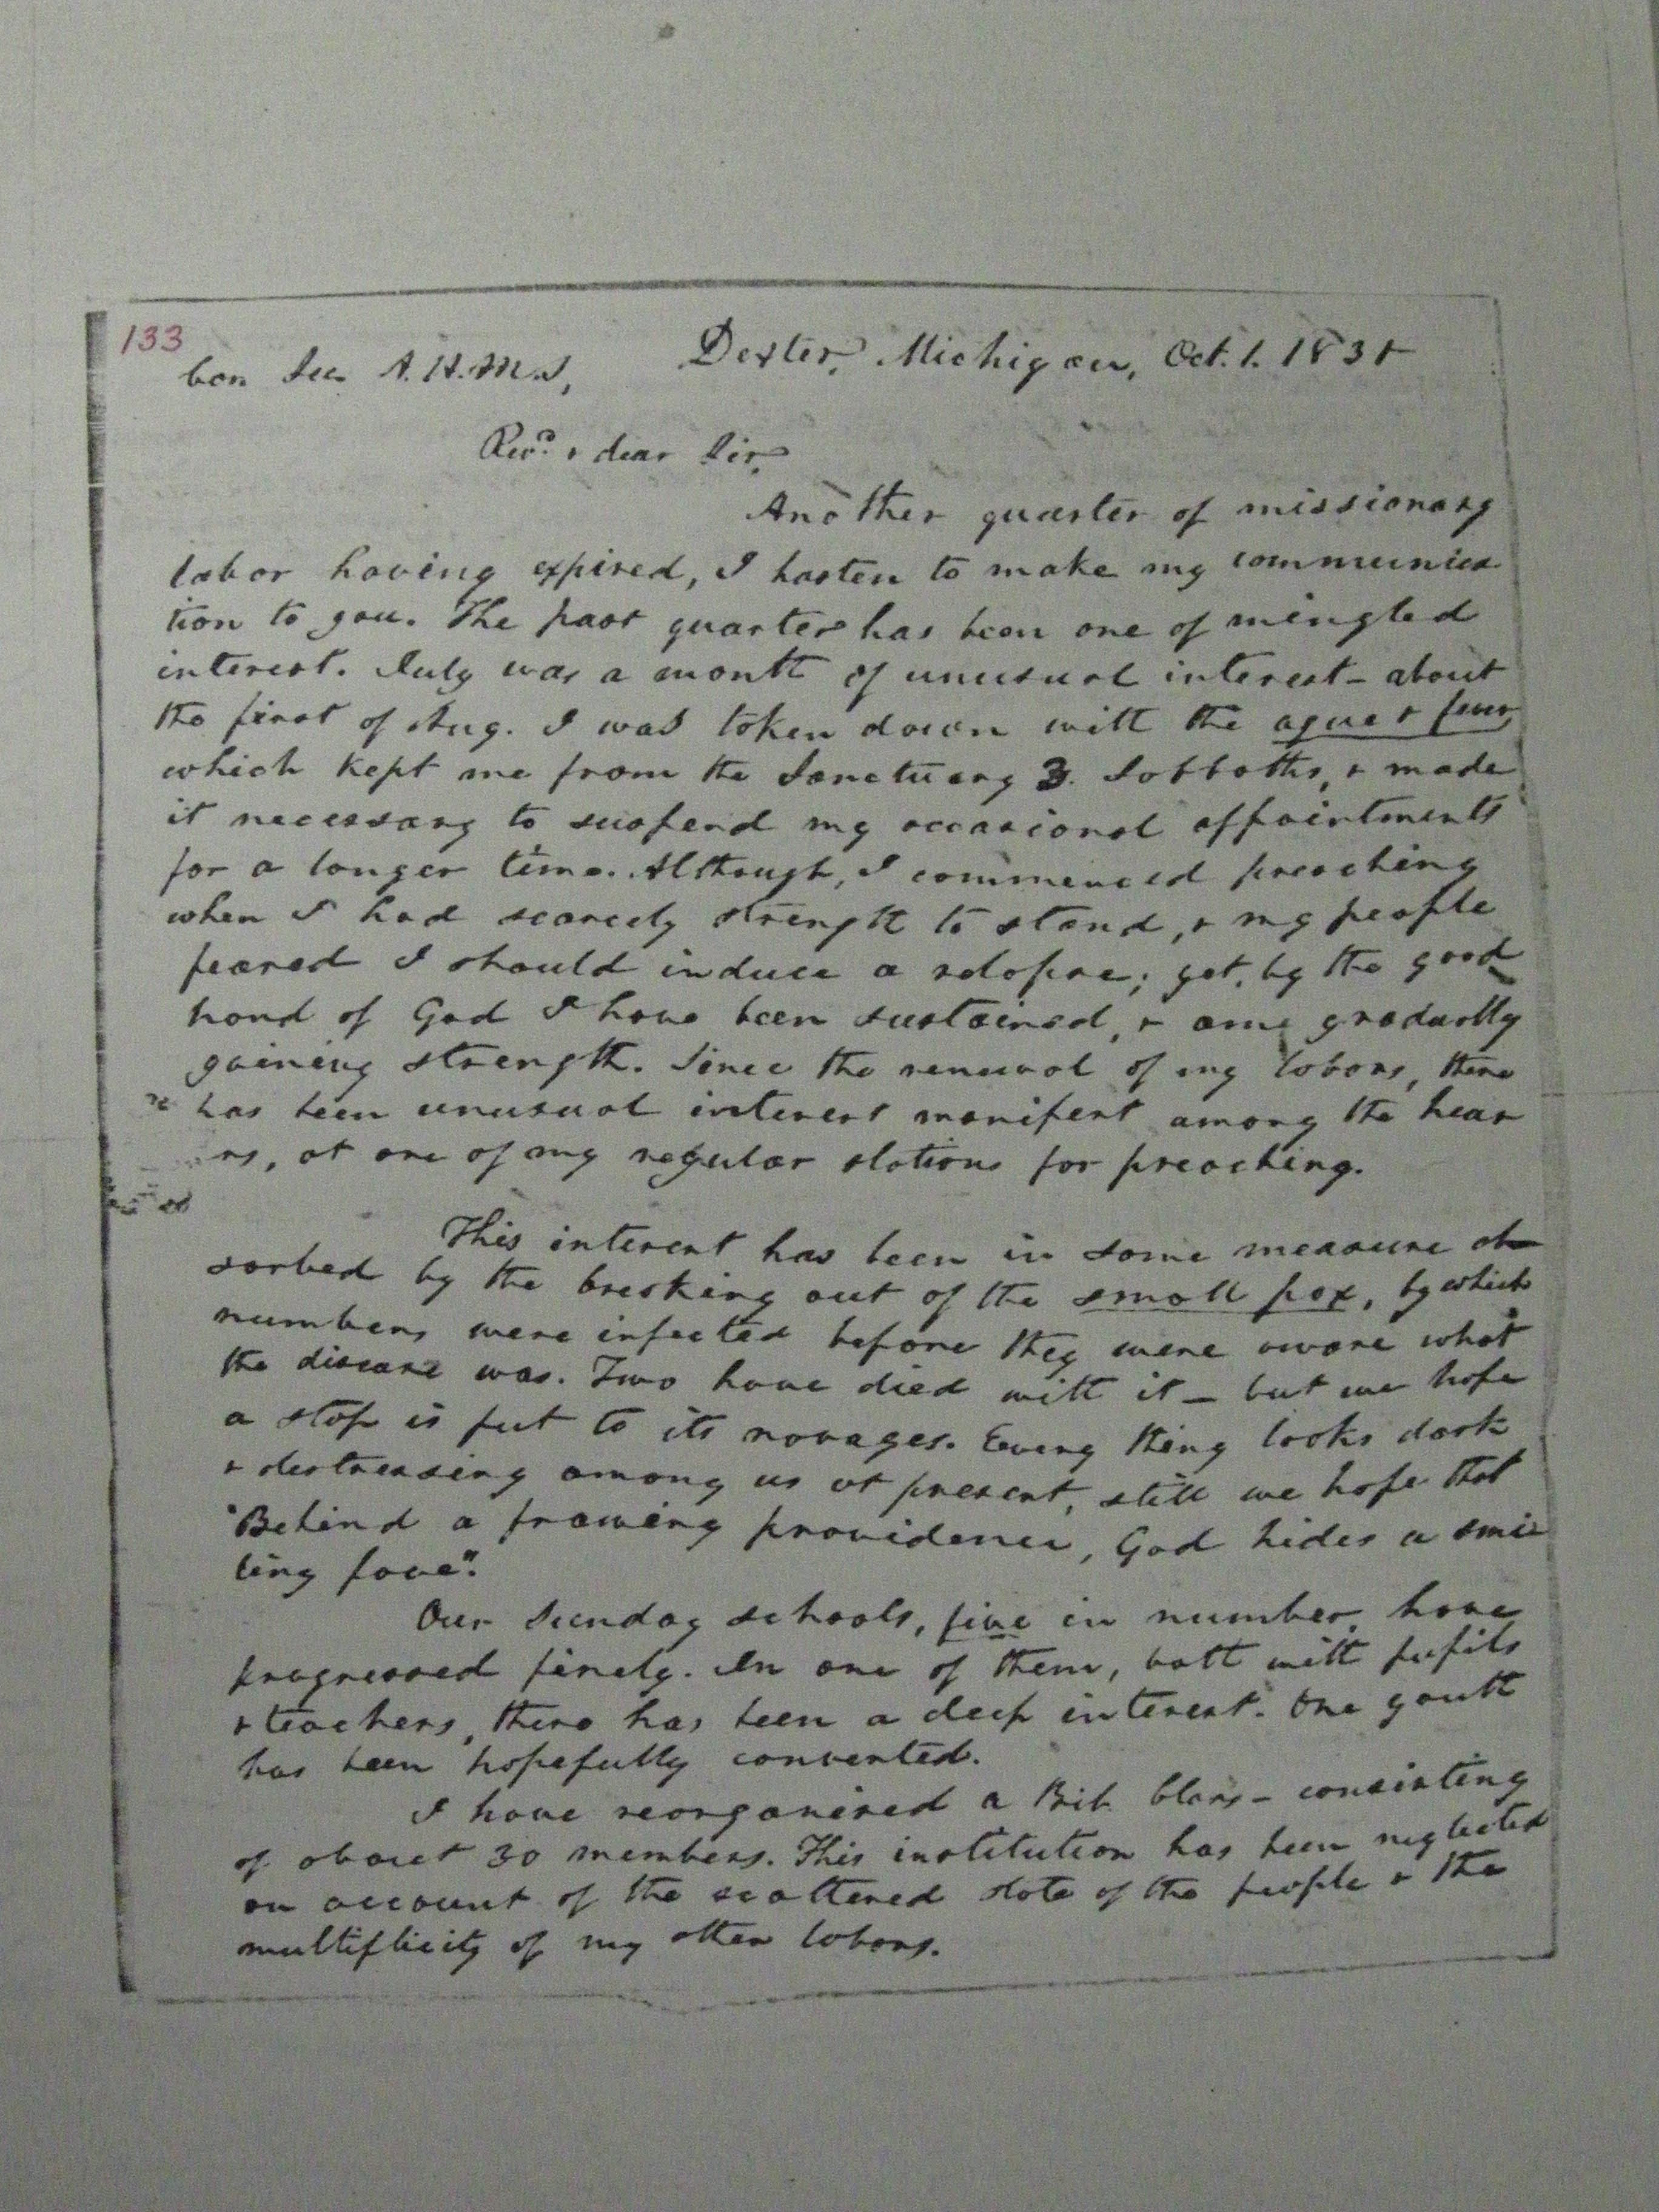 133
Cor. Sec. A.H.M.S,
Dexter, Michigan, Oct. 1. 1831
Revd. & dear Sir,
Another quarter of missionary
labor having expired, I hasten to make my communica
tion to you. The past quarter has been one of mingled
interest. July was a month of unusual interest - about
the first of Aug. I was taken down with the ague & fever
which kept me from the Sanctuary 3. Sabbaths, & made
it necessary to suspend my occasional appointments
for a longer time. Although, I commenced preaching
when I had scarcely strength to stand, & my people
feared I should induce a relapse; yet, by the good
hand of God I have been sustained, & am gradually
gaining strength. Since the renewal of my labors, there
has been unusual interest manifest among the hear
rs, at one of my regular stations for preaching.
This interest has been in some measure ab
sorbed by the breaking out of the small pox, by which
numbers were infected before they were aware what
the disease was. Two have died with it - but we hope
a stop is put to its ravages. Every thing looks dark
& distressing among us at present, still we hope that
"Behind a frowning providence, God hides a smi
ling face".
Our Sunday schools, five in number, have
progressed finely. In one of them, both with pupils
& teachers, there has been a deep interest. One youth
has been hopefully converted.
I have reorganised a Bib. Class - consisting
of about 30 members. This institution has been neglected
on account of the scattered state of the people & the
multiplicity of my other labors.